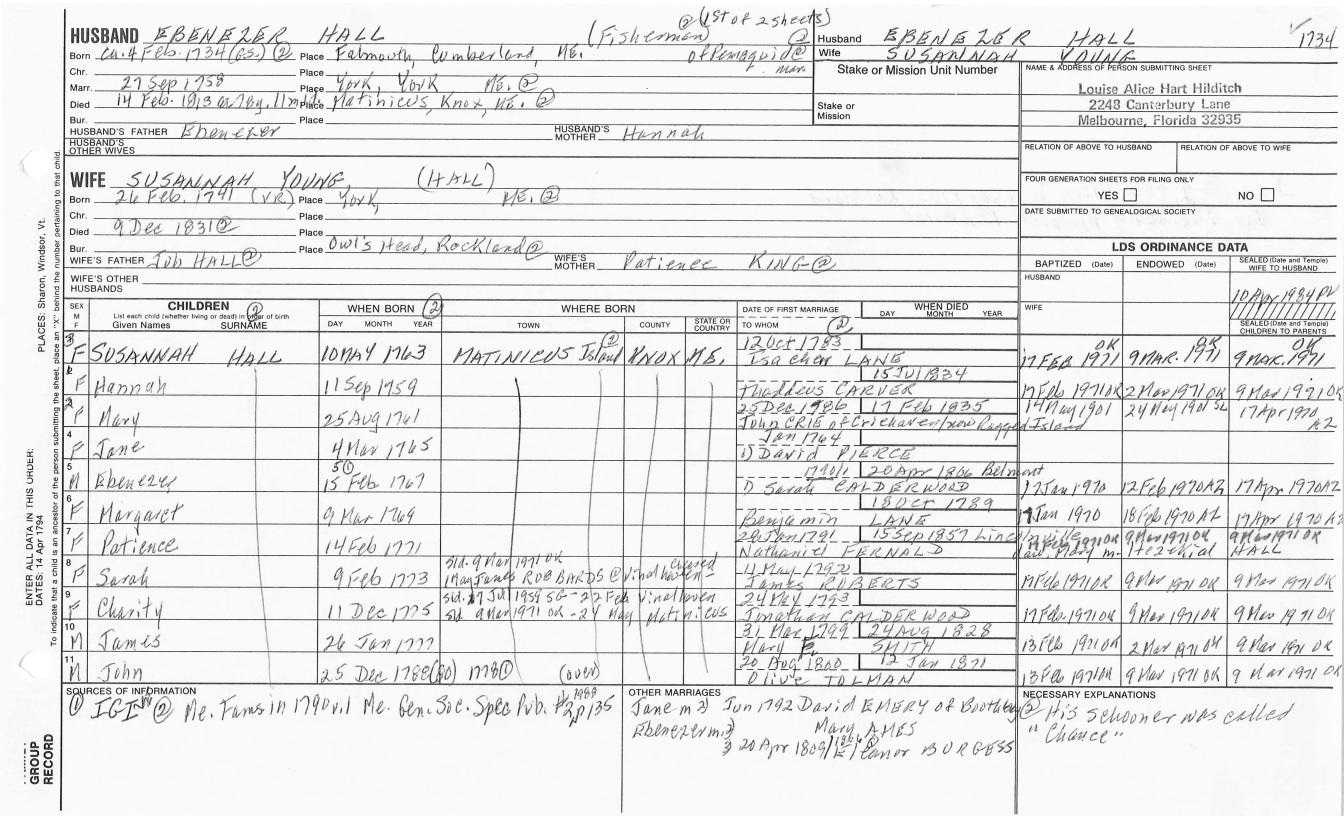 ② (1st of 2 sheets)
HUSBAND EBENEZER HALL (Fisherman) ②
Born Ch. 4 Feb. 1734 (GS.) ② Place Falmouth, Cumberland, ME. of Pemaquid @ mar.
Chr. Place
Marr. 27 Sep 1758 Place York, York ME. ②
Died 14 Feb. 1813 Place Matinicus, Knox, ME. ②
Bur. Place
HUSBAND'S FATHER Ebenezer HUSBAND'S MOTHER Hannah
HUSBAND'S OTHER WIVES
Husband EBENEZER HALL 1734
Wife SUSANNAH YOUNG
Stake or Mission Unit Number
Stake or Mission
NAME & ADDRESS OF PERSON SUBMITTING SHEET
Louise Alice Hart Hilditch
2248 Canterbury Lane
Melbourne, Florida 32935
RELATION OF ABOVE TO HUSBAND RELATION OF ABOVE TO WIFE
FOUR GENERATION SHEETS FOR FILING ONLY
YES NO
DATE SUBMITTED TO GENEALOGICAL SOCIETY
WIFE SUSANNAH YOUNG, (HALL)
Born 26 Feb. 1741 (VR.) Place York, ME. ②
Chr. Place
Died 9 Dec 1831 ② Place
Bur. Place Owl's Head, Rockland ②
WIFE'S FATHER Job HALL ② WIFE'S MOTHER Patience KING ②
WIFE'S OTHER HUSBANDS
LDS ORDINANCE DATA
BAPTIZED (Date) ENDOWED (Date) SEALED (Date and Temple) WIFE TO HUSBAND
HUSBAND
WIFE
10 Apr 1984 PV
SEALED (Date and Temple) CHILDREN TO PARENTS
SEX M F CHILDREN ② WHEN BORN ② WHERE BORN DATE OF FIRST MARRIAGE WHEN DIED
List each child (whether living or dead) in order of birth
Given Names SURNAME DAY MONTH YEAR TOWN COUNTY STATE OR COUNTRY TO WHOM ② DAY MONTH YEAR
3 12 Oct 1783 OK OK OK
F SUSANNAH HALL 10 MAY 1763 MATINICUS Island ② KNOX ME. Isacher LANE 17 FEB 1971 9 MAR. 1971 9 MAR. 1971
1 15 Jul 1834
F Hannah 11 Sep 1759 Thaddeus CARVER 17 Feb 1971 OK 2 Mar 1971 OK 9 Mar 1971 OK
2 25 Dec 17 Feb 1835 14 May 1901 24 May 1901 SL 17 Apr 1970 AZ
F Mary 25 Aug 1761 John CRIE of Criehaven/now Ragged Island
4 Jan 1764
F Jane 4 Mar 1765 1) David PIERCE
5 20 Apr 1866 Belmont
M Ebenezer 15 Feb 1767 1) Sarah CALDERWOOD 17 Jan 1970 12 Feb 1970 AZ 17 Apr 1970 AZ
6 18 Oct 1789
F Margaret 9 Mar 1769 Benjamin LANE 17 Jan 1970 18 Feb 1970 AZ 17 Apr 1970 AZ
7 15 Sep 1857 9 Mar 1971 OK 9 Mar 1971 OK
F Patience 14 Feb 1771 Nathaniel FERNALD Mary m. Hezekial HALL
8 Sld. 9 Mar 1971 OK 11 May 1792
F Sarah 9 Feb 1773 1 May James ROBBARDS @ Vinalhaven James ROBERTS 17 Feb 1971 OK 9 Mar 1971 OK 9 Mar 1971 OK
9 Sld. 17 Jul 1959 SG - 22 Feb Vinalhaven 24 May 1793
F Charity 11 Dec 1775 Sld 9 Mar 1971 OK - 24 May Matinicus Jonathan CALDERWOOD 17 Feb 1971 OK 9 Mar 1971 OK 9 Mar 1971 OK
10 31 Mar 1799 24 AUG 1828
M James 26 Jan 1777 Mary SMITH 13 Feb 1971 OK 2 Mar 1971 OK 9 Mar 1971 OK
11 20 Aug 1800 12 Jan 1871
M John 25 Dec 1788 (80) 1778 ① (over) Olive TOLMAN 13 Feb 1971 OK 9 Mar 1971 OK 9 Mar 1971 OK
SOURCES OF INFORMATION
① IGI ② Me. Fams in 1790 v.1 Me. Gen. Soc. Spec Pub. #2 1988 p135
OTHER MARRIAGES
Jane m 2) Jun 1792 David EMERY of Boothbay
Ebenezer m. 2) Mary AMES
3) 20 Apr 1809 BURGESS
NECESSARY EXPLANATIONS
② His schooner was called
"Chance"
PLACES: Sharon, Windsor, Vt.
ENTER ALL DATA IN THIS ORDER:
DATES: 14 Apr 1794
To indicate that a child is an ancestor of the person submitting the sheet, place an "X" behind the number pertaining to that child.
GROUP
RECORD